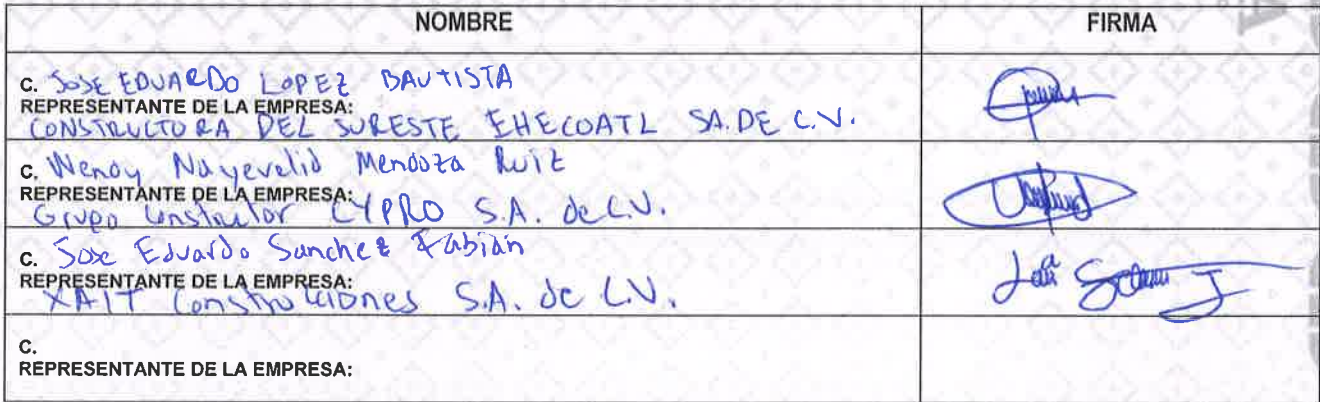 NOMBRE FIRMA
C. JOSE EDUARDO LOPEZ BAUTISTA
REPRESENTANTE DE LA EMPRESA:
CONSTRUCTORA DEL SURESTE EHECOATL SA. DE C.V.
C. Wendy Nayevelid Mendoza Ruiz
REPRESENTANTE DE LA EMPRESA:
Grupo Constructor CYPRO S.A. de C.V.
C. Jose Eduardo Sanchez Fabián
REPRESENTANTE DE LA EMPRESA:
XAIT Construcciones S.A. de C.V.
C.
REPRESENTANTE DE LA EMPRESA: